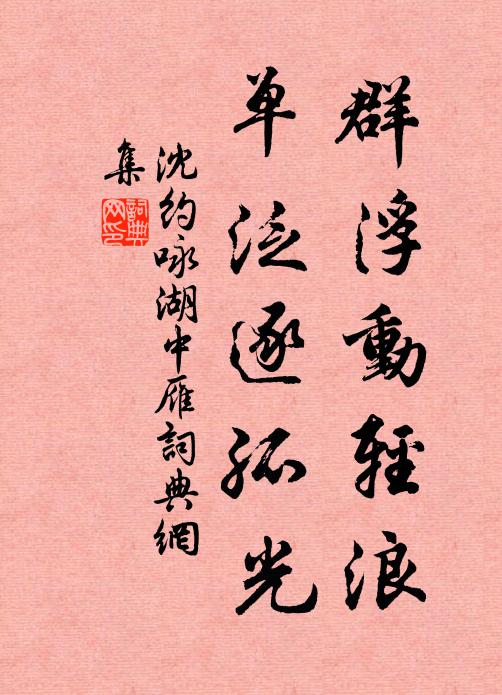 群浮動輕浪
单泛逐孤光
沈約咏湖中雁詞典網
集
詞典
网印